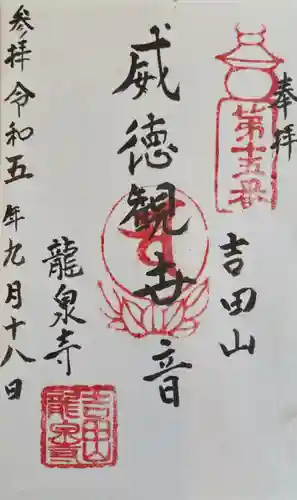 奉拝
第十五番
吉田山
威徳観世音
龍泉寺
参拝令和五年九月十八日
吉田山
龍泉寺